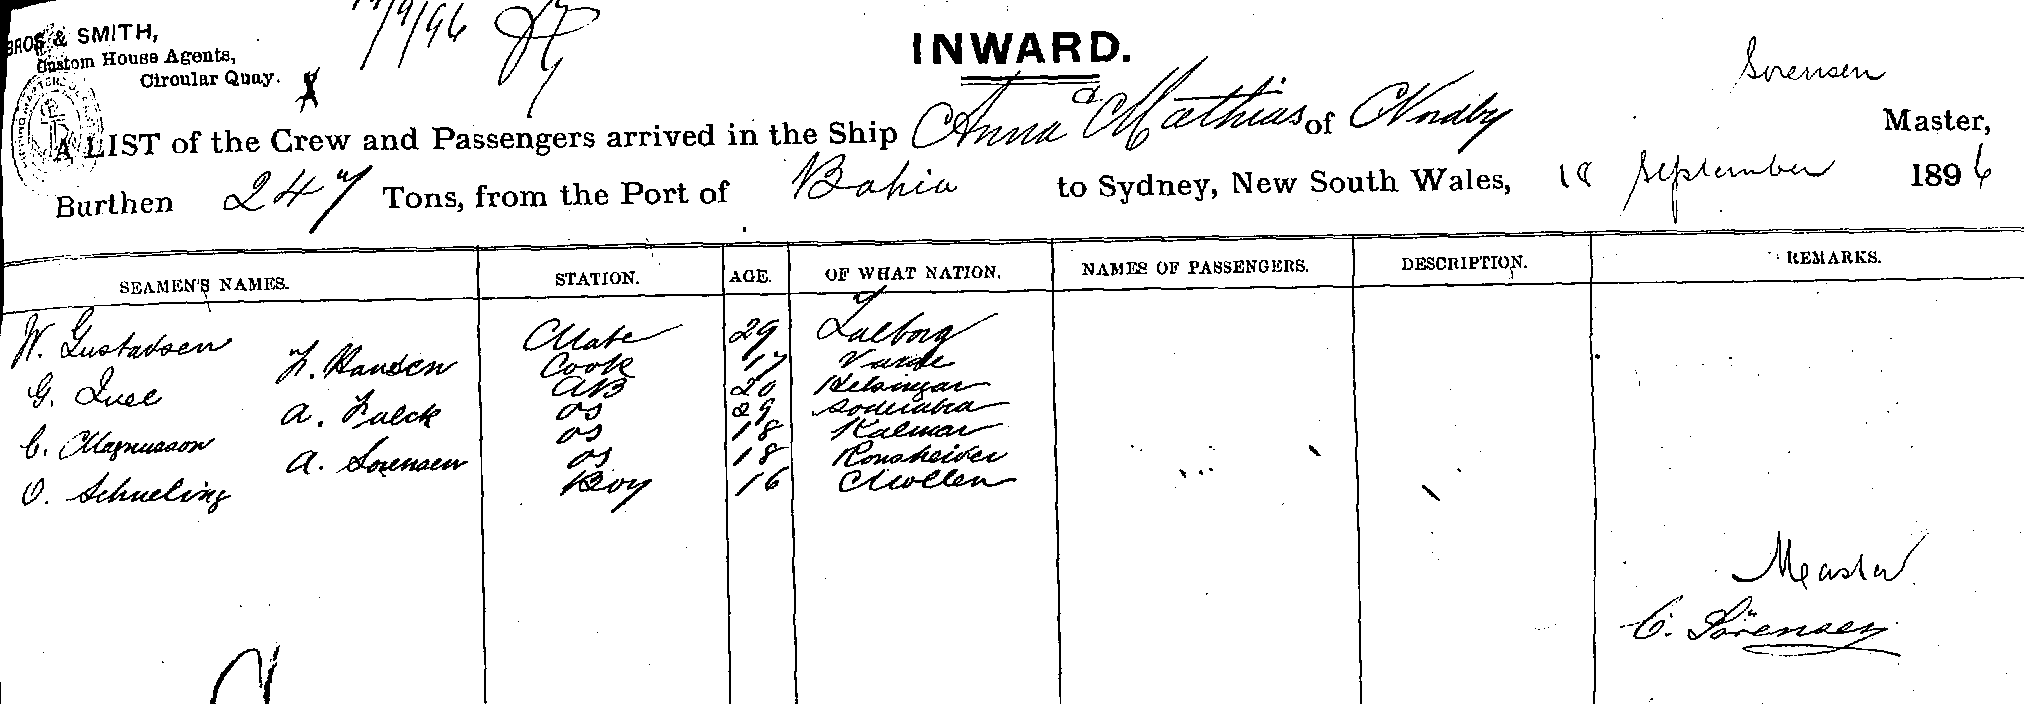 BROS & SMITH,
Custom House Agents,
Circular Quay.
/9/96
INWARD.
Sorensen
A LIST of the Crew and Passengers arrived in the Ship Anna & Mathias of Nordby Master,
Burthen 247 Tons, from the Port of Bahia to Sydney, New South Wales, 18 September 1896
SEAMEN'S NAMES. STATION. AGE. OF WHAT NATION. NAMES OF PASSENGERS. DESCRIPTION. REMARKS.
W. Gustavsen Mate 29 Aalborg
H. Hansen Cook 17 Varde
G. Juel AB 20 Helsingør
A. Falck OS 29
C. Magnusson OS 18 Kalmar
A. Sorensen OS 18 Ronsheider
O. Schueling Boy 16 Mollen
Master
C. Sörensen